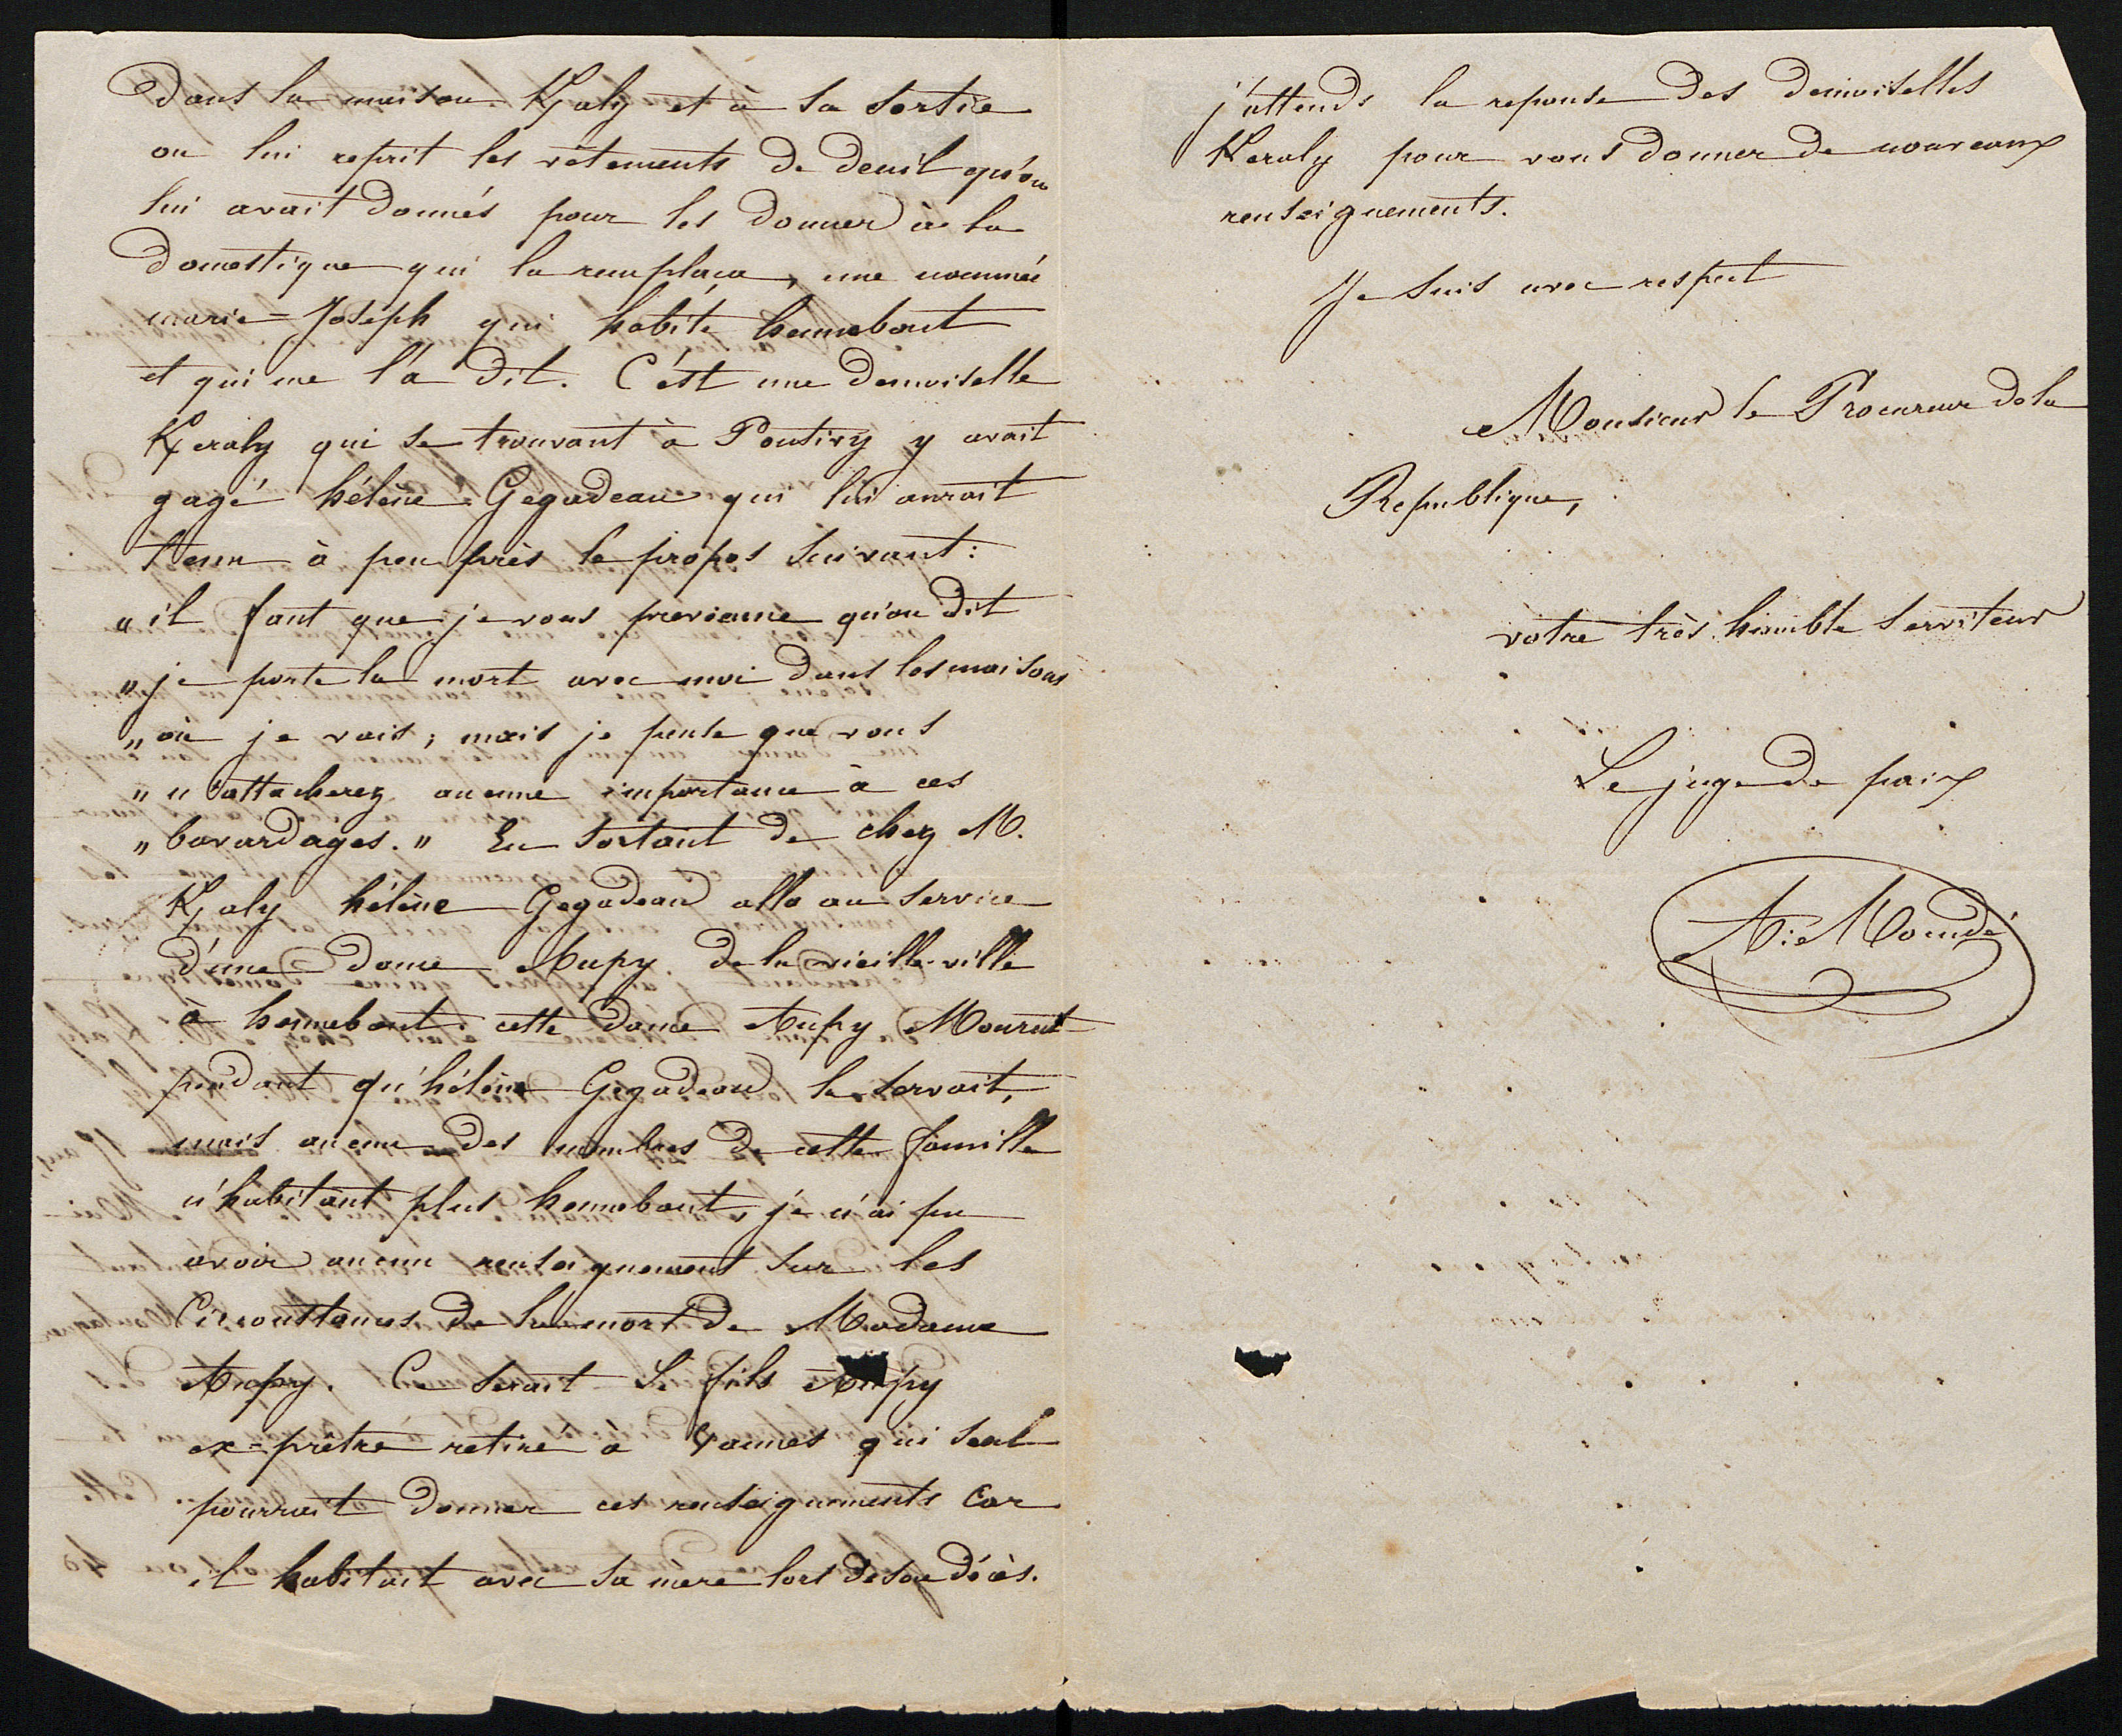 Dans la maison K/aly et à sa sortie
on lui reprit les vêtements de deuil qu'on
lui avait donnés pour les donner à la
domestique qui la remplaça, une nommée
marie=Joseph qui habite hennebont
et qui me l'a dit. C'est une demoiselle
K/eraly qui se trouvant à Pontivy y avait
gagé hélène Gegadeau qui lui aurait
tenu à peu près le propos suivant:
"il faut que je vous previenne qu'on dit
"je porte la mort avec moi dans les maisons
"où je vais; mais je pense que vous
"n'attacherez aucune importance à ces
"bavardages." En sortant de chez M.
K/aly hélène Gegadeau alla au service
d'une dame Aupy de la vieille-ville
à hennebont. cette dame Aupy Mourut
pendant qu'hélène Gegadeau la servait,
mais aucun des membres de cette famille
n'habitant plus hennebont, je n'ai pu
avoir aucun renseignement sur les
Circonstances de la mort de Madame
Aupy. Ce serait le fils Aupy
ex=prêtre retiré à Vannes qui seul
pourrait donner ces renseignements car
il habitait avec sa mere lors de son décès.
j'attends la reponse des demoiselles
Keraly pour vous donner de nouveaux
renseignements.
Je suis avec respect
Monsieur le Procureur de la
Republique,
votre très humble serviteur
Le juge de paix